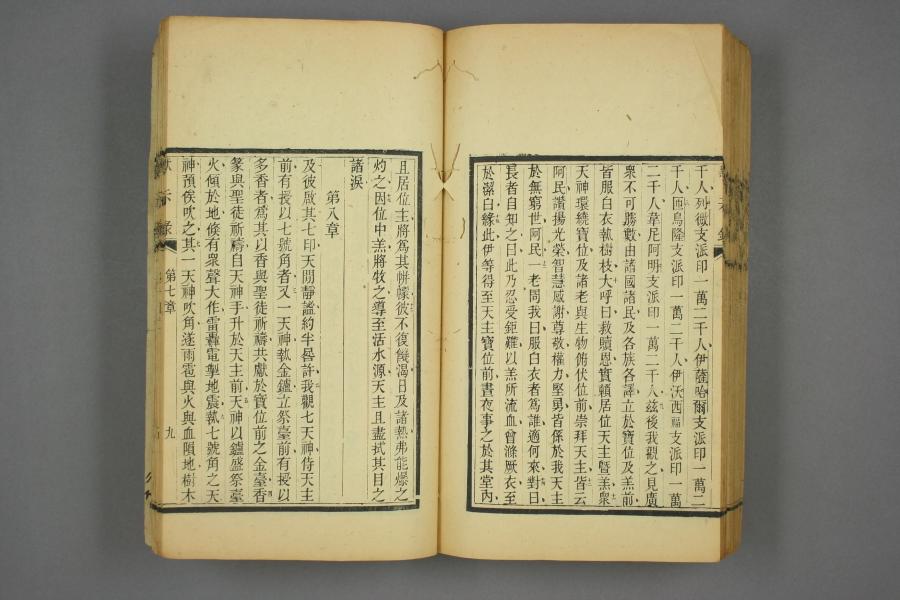 千人列微支派印一萬二千人伊薩哈爾支派印一萬二
千人匝烏隆支派印一萬二千人伊沃西福支派印一萬
二千人韋尼阿明支派印一萬二千人兹後我觀之見廣
衆不可勝數由諸國諸民及各族各譯立於寶位及羔前
皆服白衣執樹枝大呼曰救贖恩實賴居位天主暨羔衆
天神環繞寶位及諸老與生物俯伏位前崇拜天主皆云
阿民讚揚光榮智慧感謝尊敬權力堅勇皆係於我天主
於無窮世阿民一老問我曰服白衣者爲誰適何來對曰
長者自知之曰此乃忍受鉅難以羔所流血曾滌厥衣至
於潔白緣此伊等得至天主寶位前晝夜事之於其堂內
且居位主將爲其帡幪彼不復饑渴日及諸熱弗能爆之
灼之因位中羔將牧之導至活水源天主且盡拭其目之
諸淚
第八章
及彼啟其七印天閒靜謐約半晷許我觀七天神侍天主
前有授以七號角者又一天神執金鑪立祭臺前有授以
多香者爲其以香與聖徒祈禱共獻於寶位前之金臺香
篆與聖徒祈禱自天神手升於天主前天神以鑪盛祭臺
火傾於地倏有衆聲大作雷轟電掣地震執七號角之天
神預俟吹之其一天神吹角遂雨雹與火與血隕地樹木
示錄
第七章
九